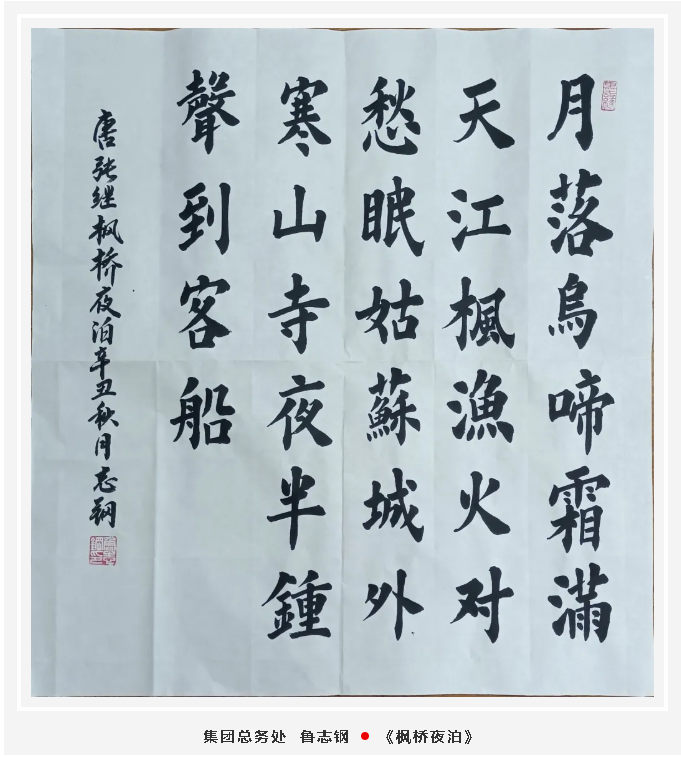 月落烏啼霜滿
天江楓漁火对
愁眠姑蘇城外
寒山寺夜半鍾
聲到客船
唐张继枫桥夜泊辛丑秋月志钢
集团总务处 鲁志钢 ● 《枫桥夜泊》